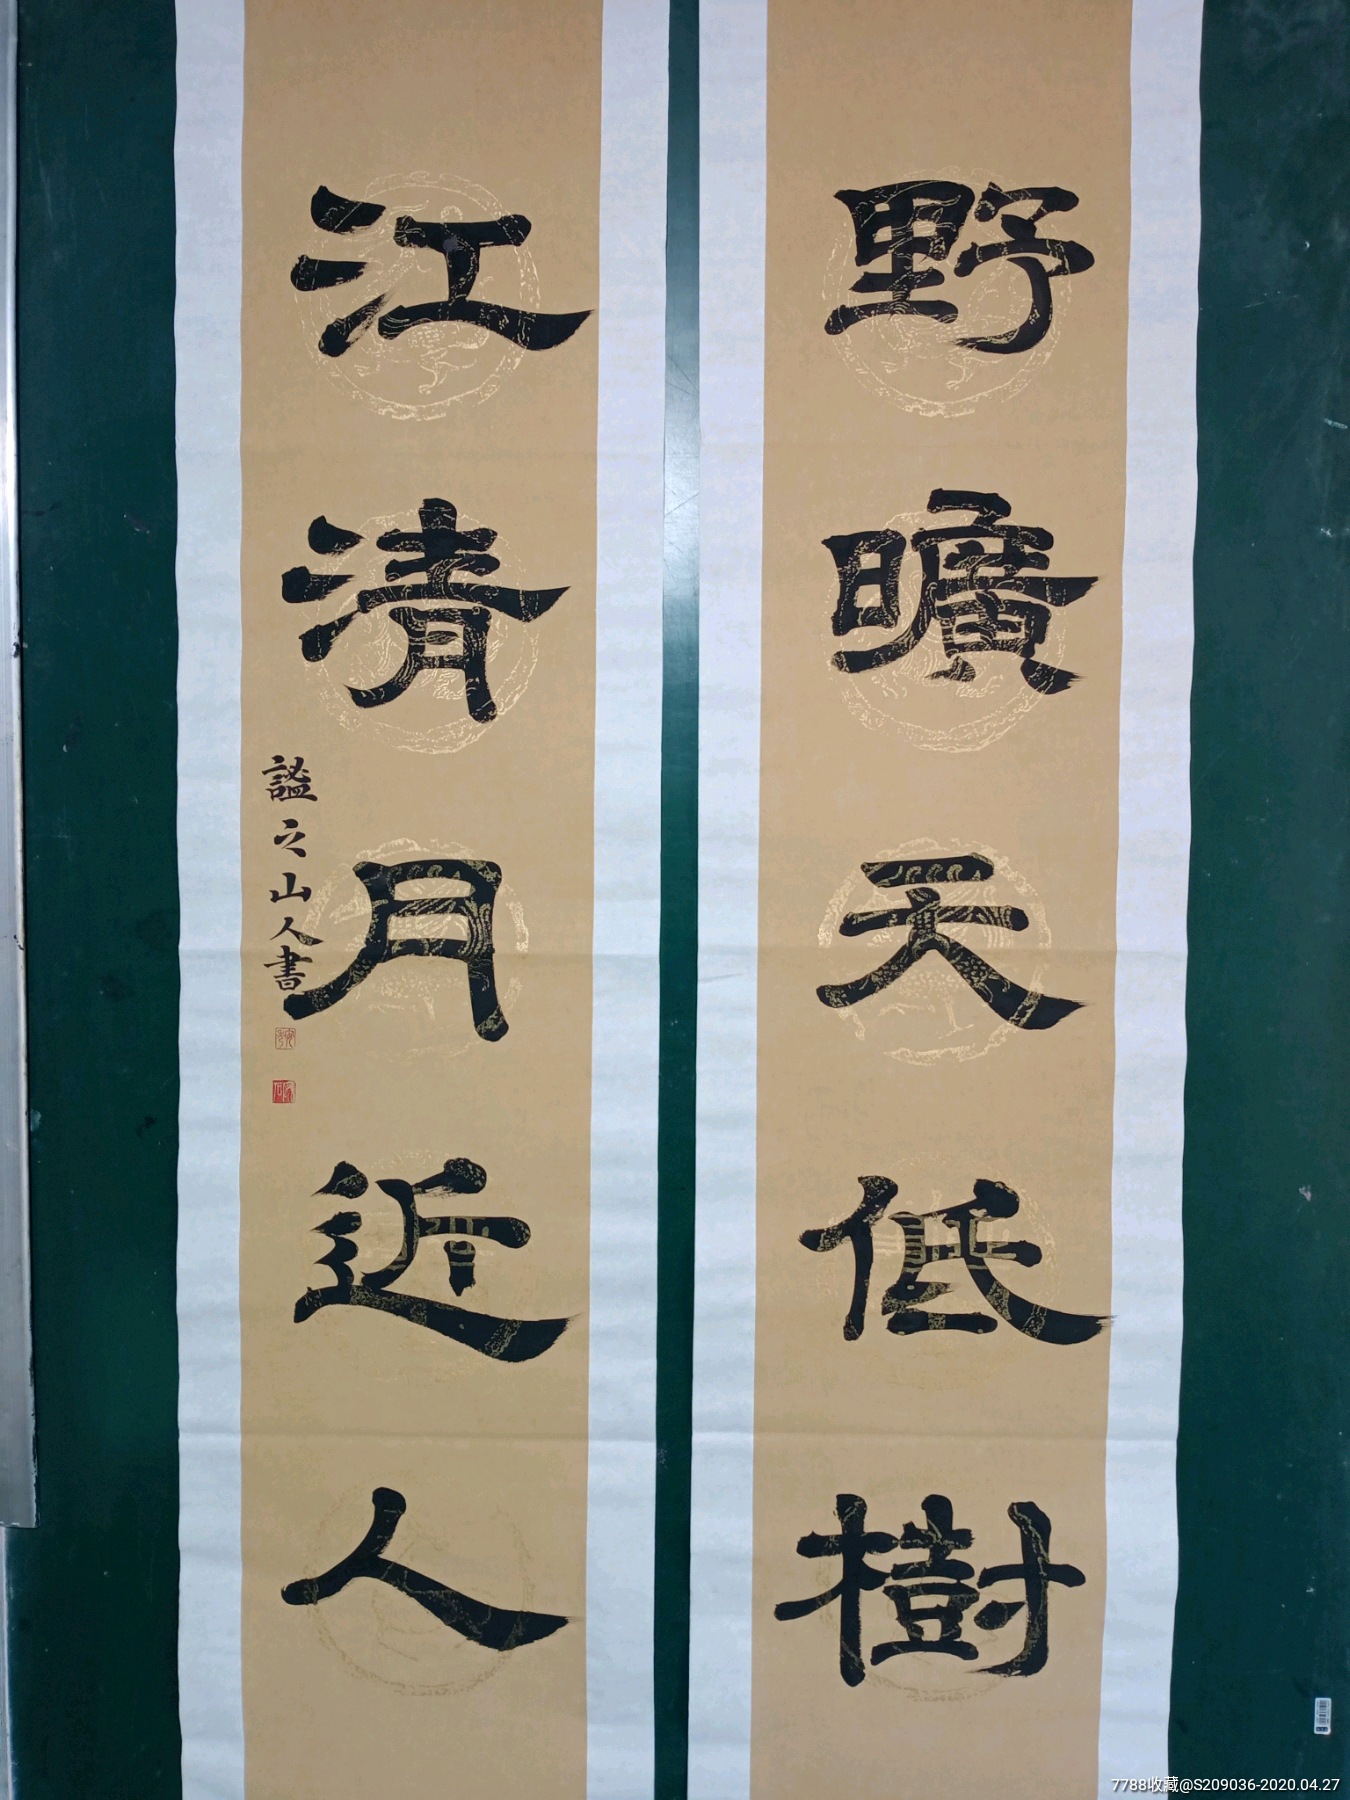 野曠天低樹
江清月近人
謐之山人書
7788收藏@S209036-2020.04.27